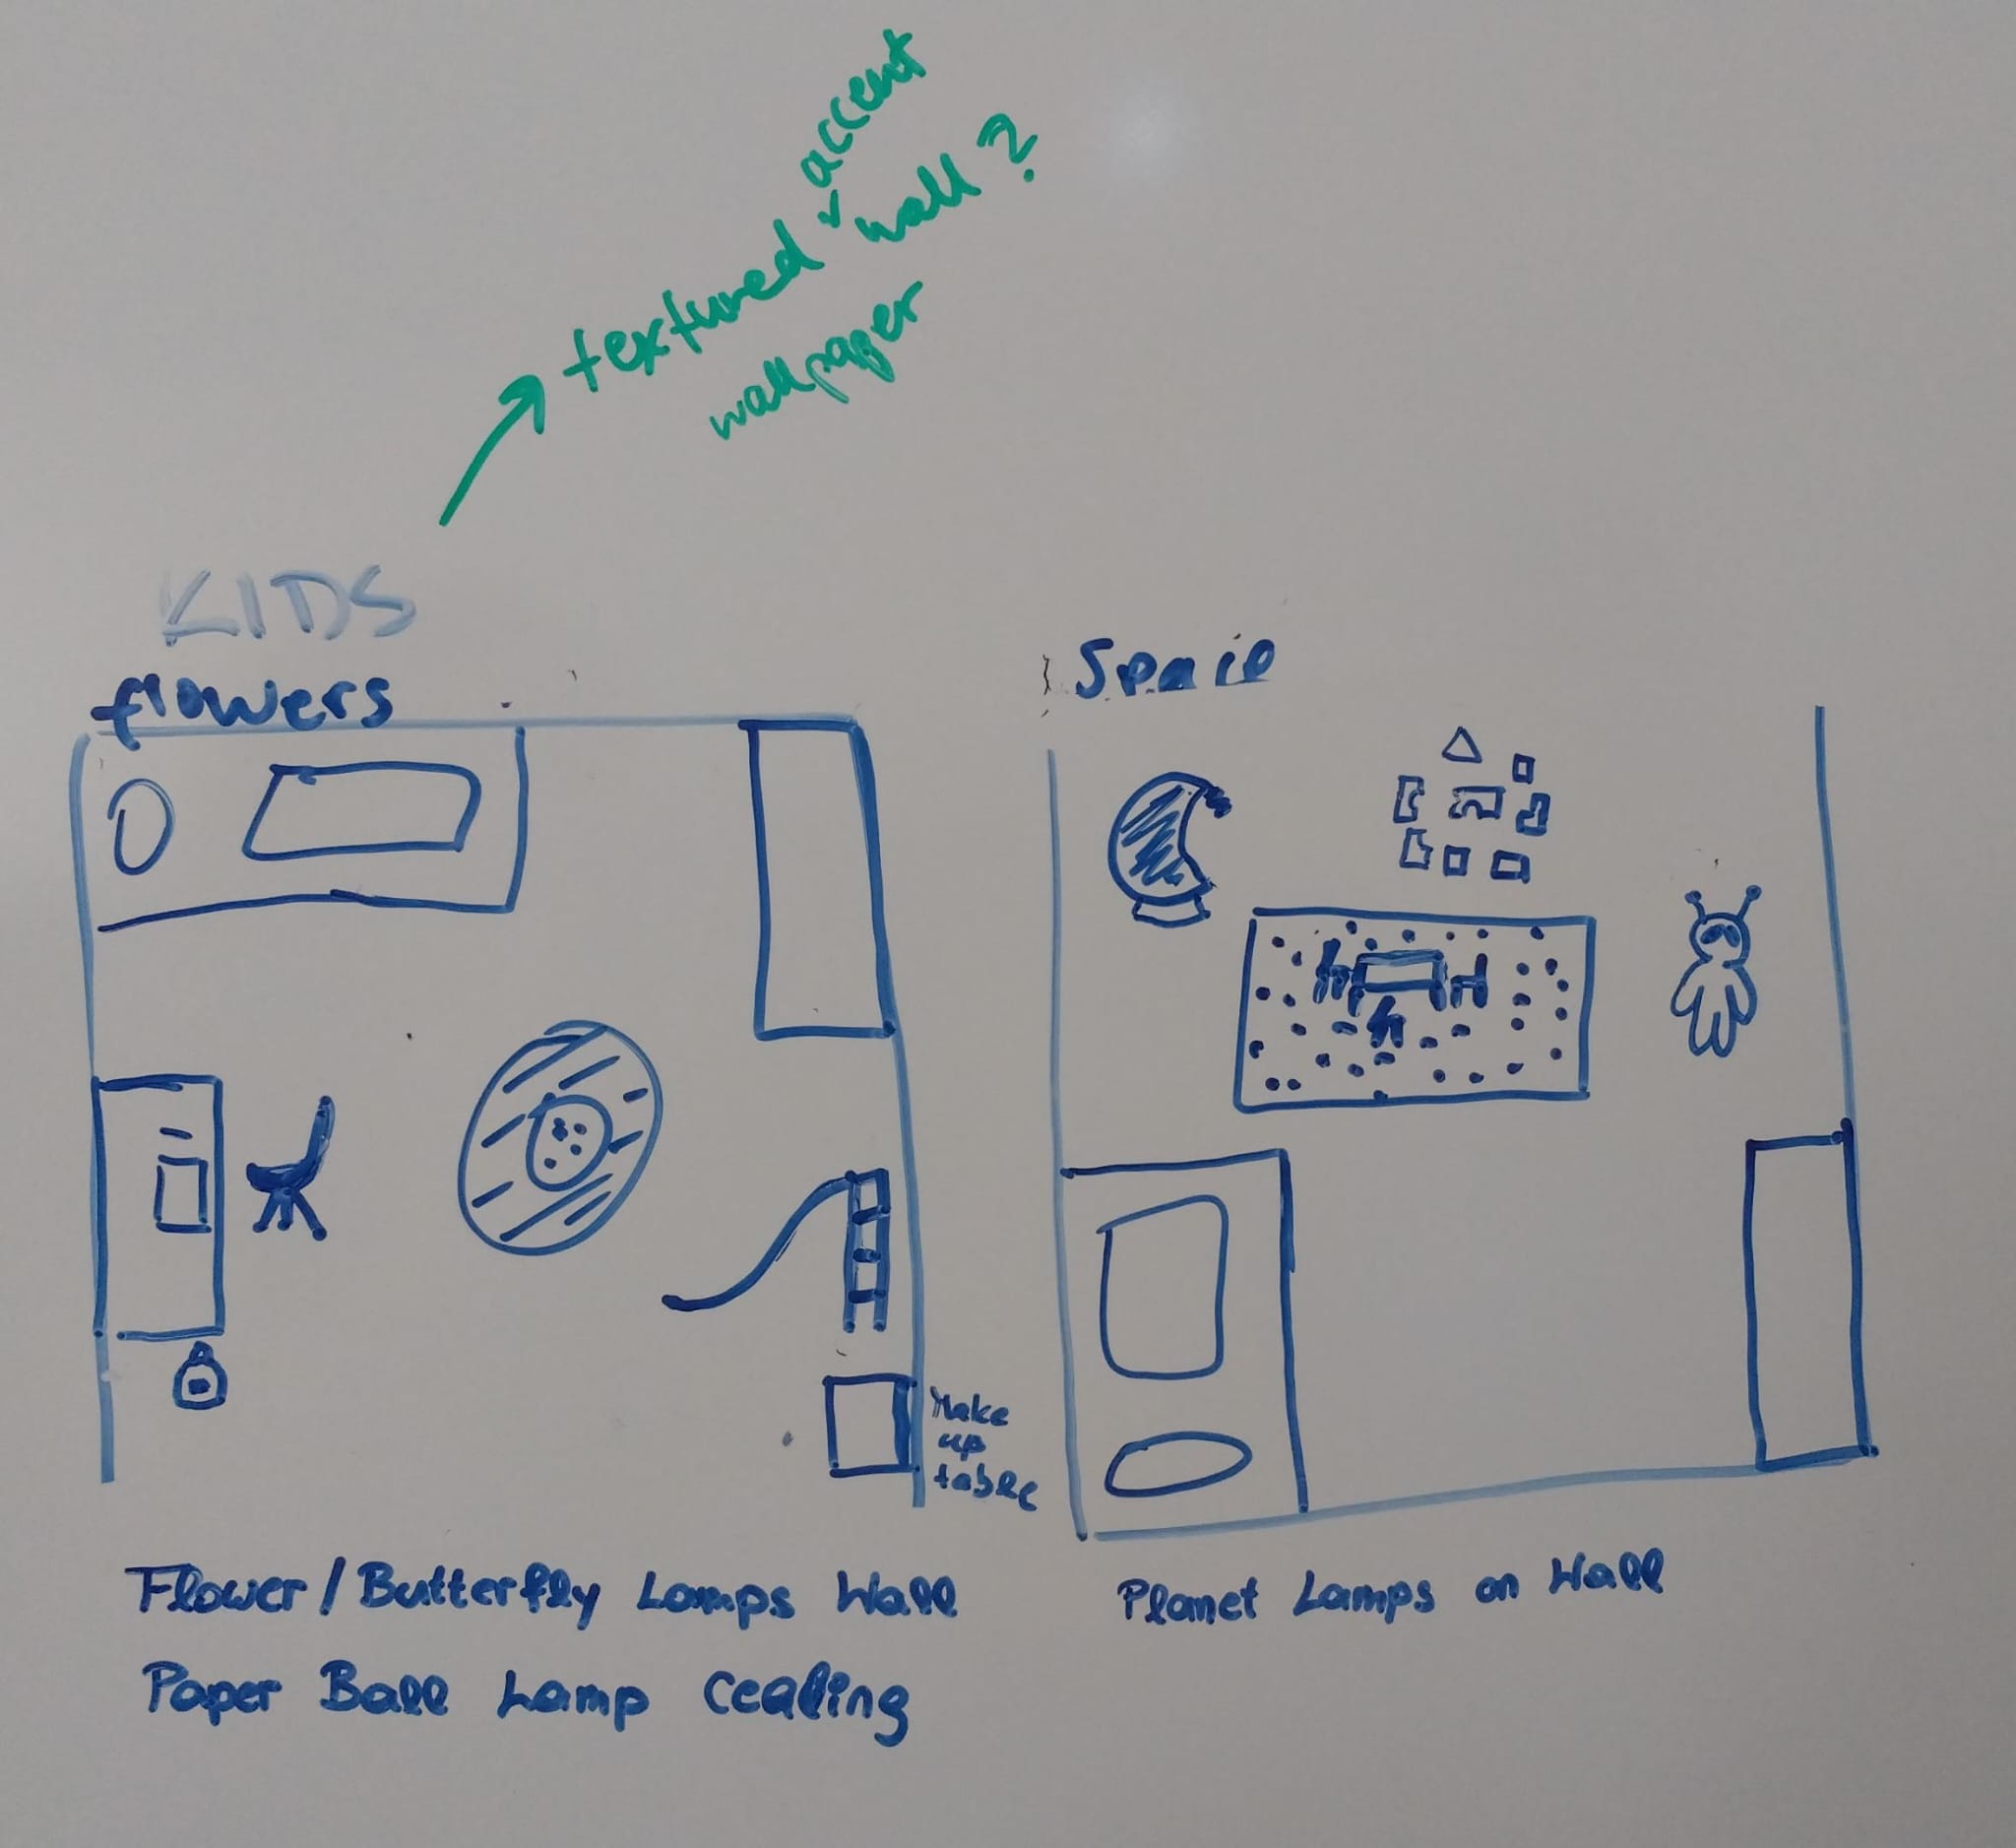 textured accent wall?
wallpaper
KIDS
flowers
Space
Make
up
table
Flower/Butterfly Lamps Wall
Paper Ball Lamp Cealing
Planet Lamps on Wall